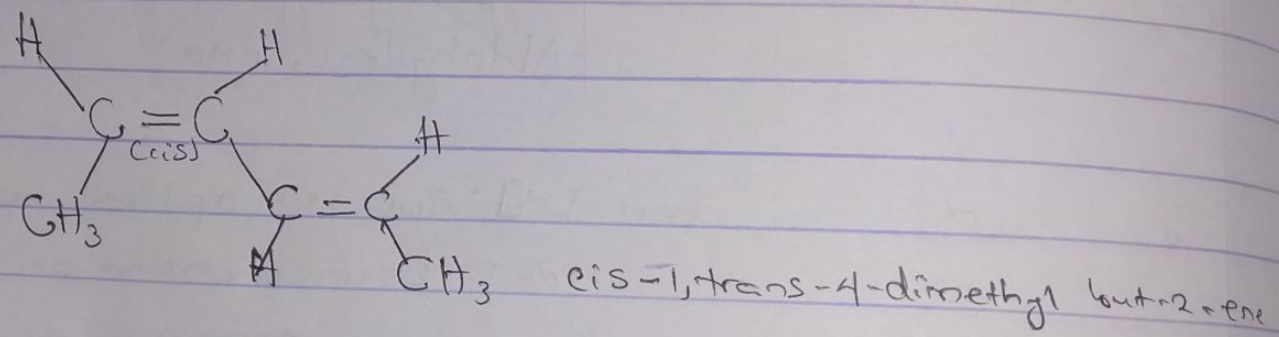 H H
C = C H
(cis)
CH3 C = C
H CH3 cis-1,trans-4-dimethyl but-2-ene